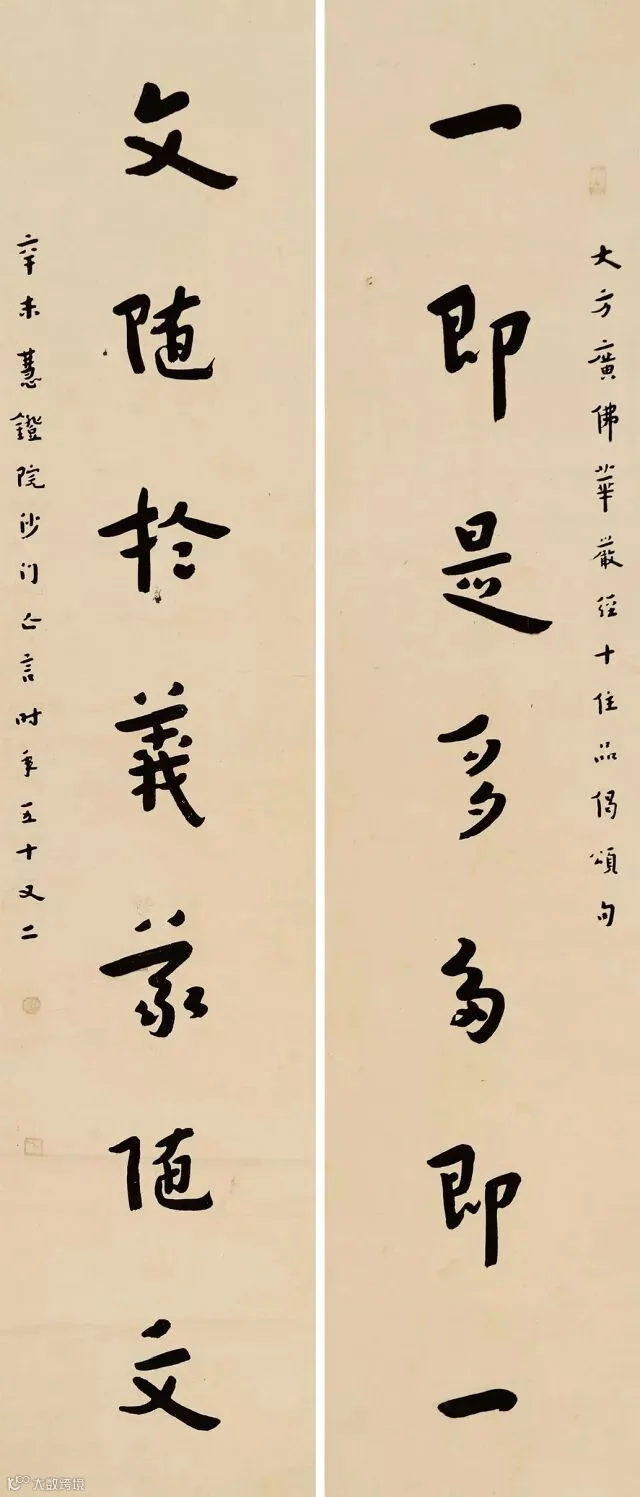 大方廣佛華嚴經十住品偈頌句
一即是多多即一
文随於義義随文
辛未慧鐙院沙门亡言时年五十又二
大数跨境